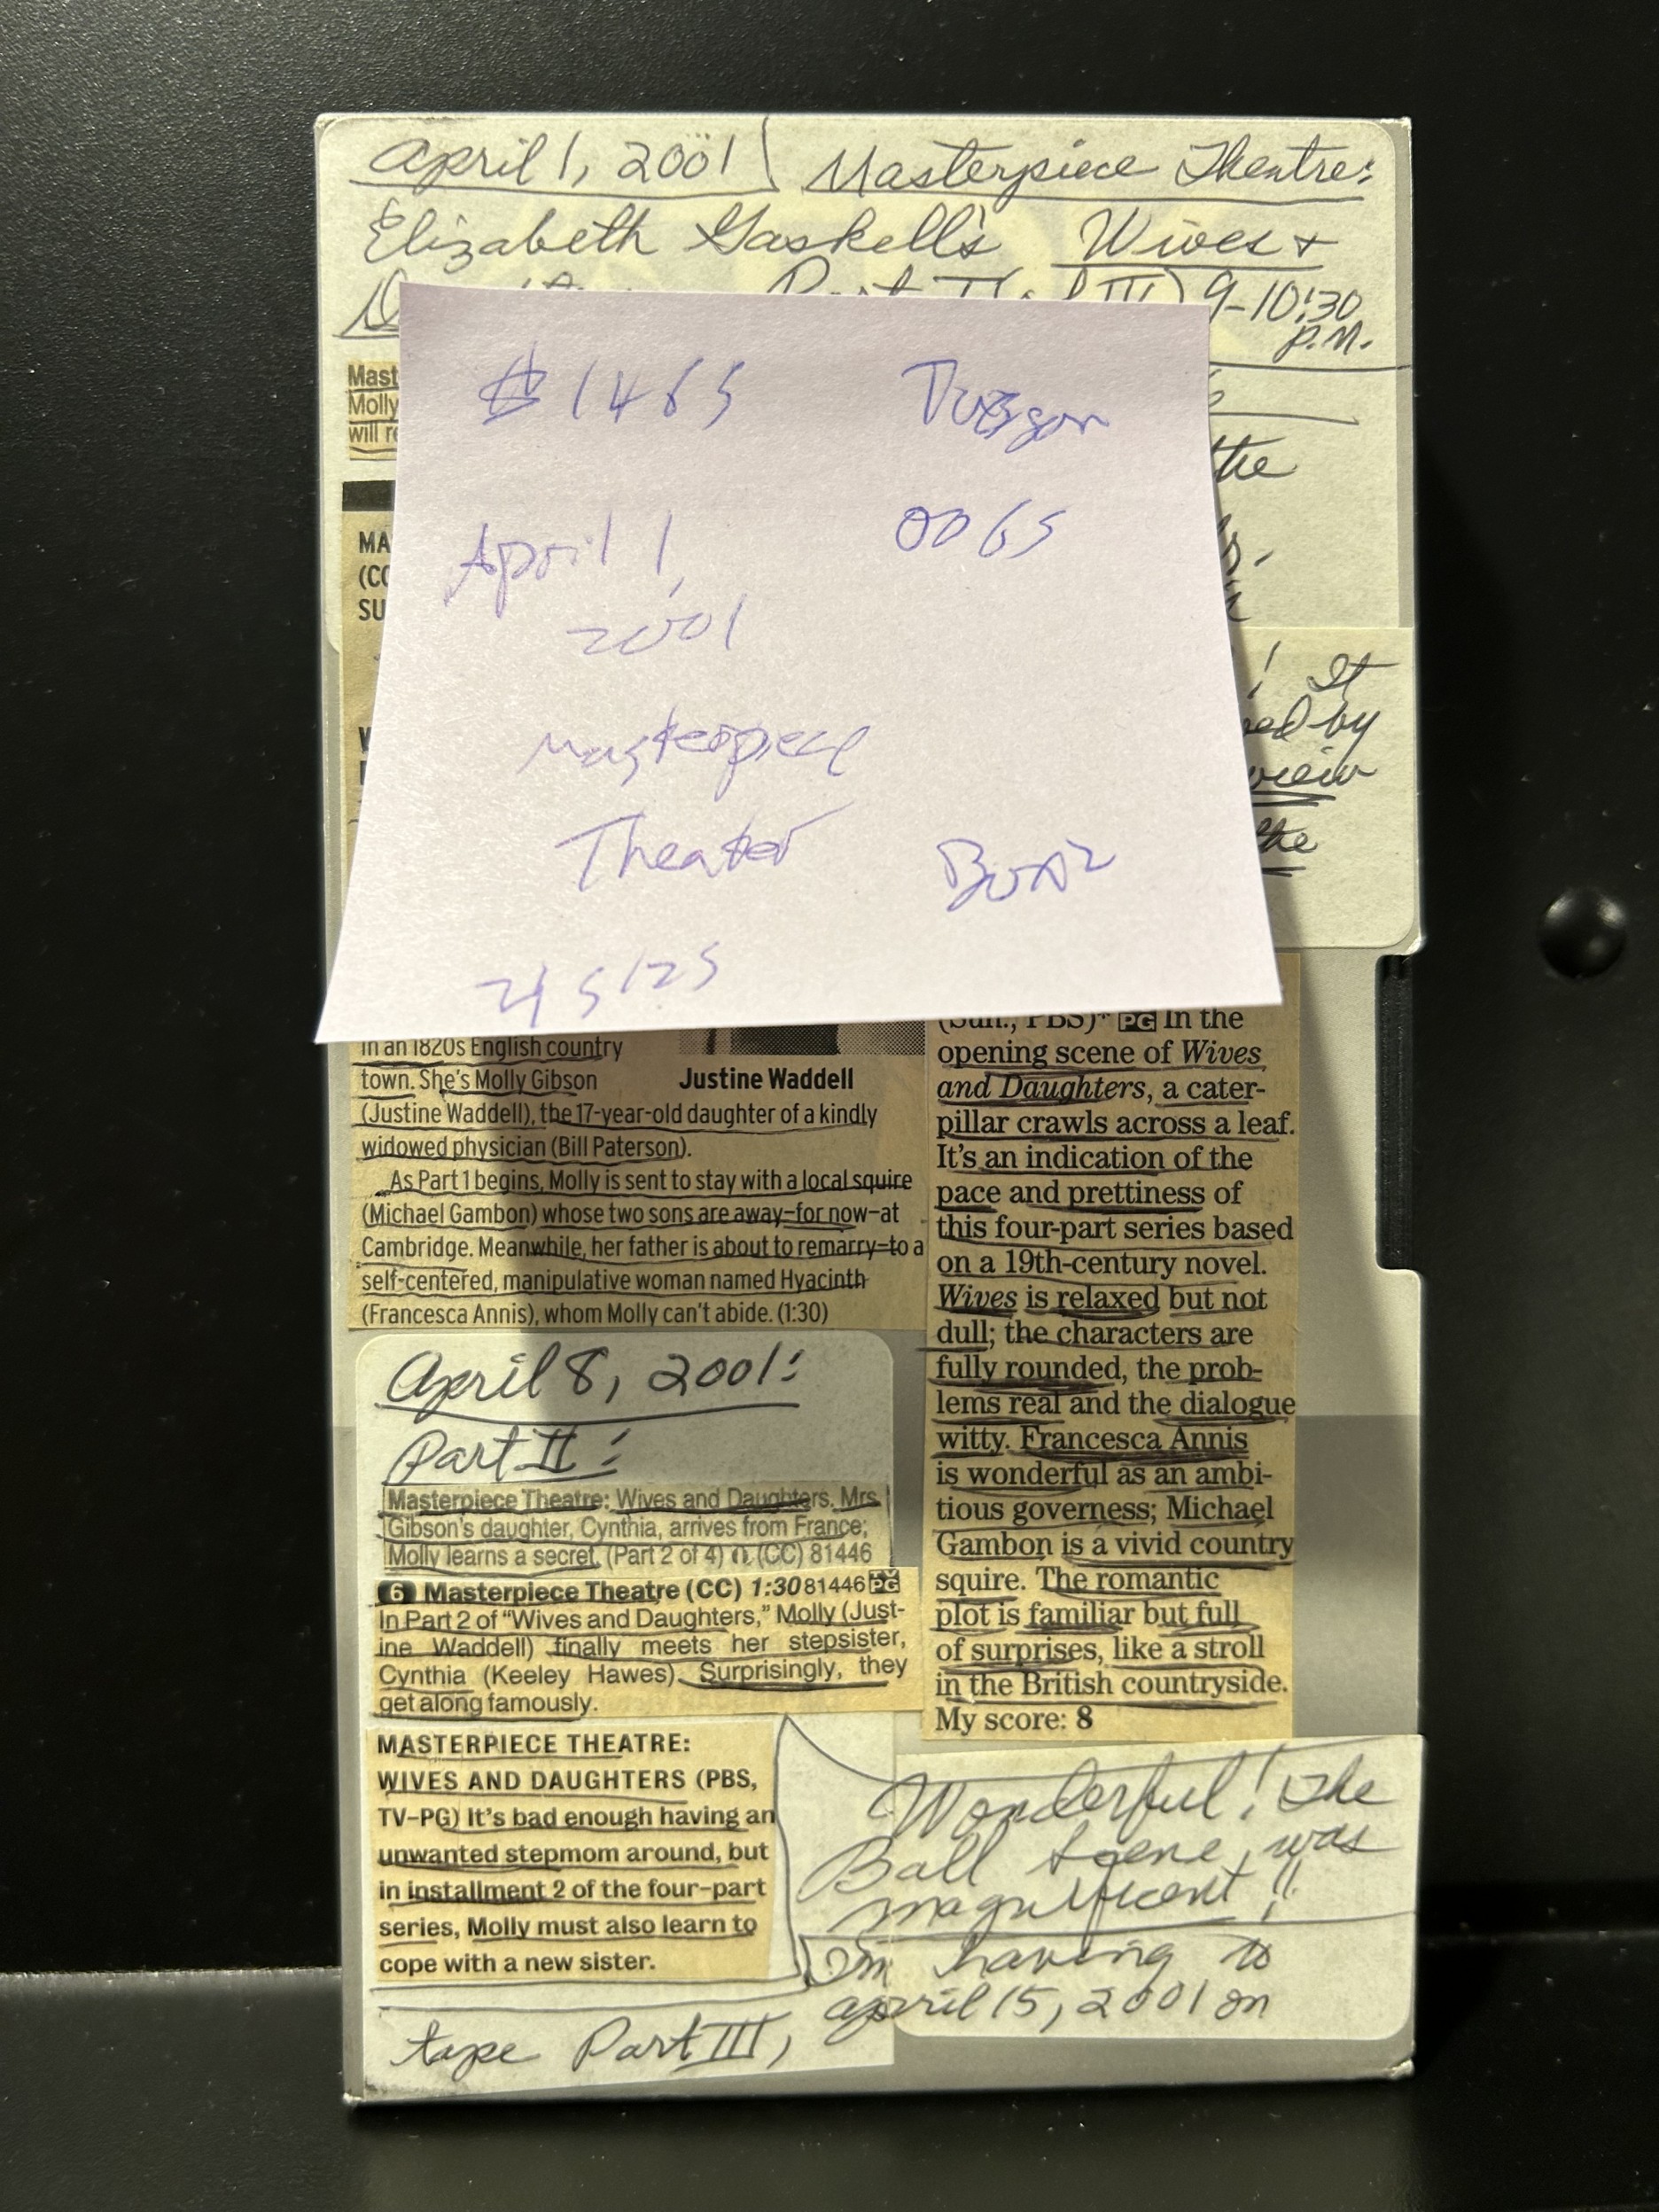 April 1, 2001 Masterpiece Theatre:
Elizabeth Gaskell's Wives +
9-10:30
P.M.
Mast
Molly
will re
the
MA
(CC
SU
! It
ed by
view
the
$1465
April 1,
2001
Masterpiece
Theater
0065
in an 1820s English country
town. She's Molly Gibson
(Justine Waddell), the 17-year-old daughter of a kindly
widowed physician (Bill Paterson).
As Part 1 begins, Molly is sent to stay with a local squire
(Michael Gambon) whose two sons are away–for now–at
Cambridge. Meanwhile, her father is about to remarry–to a
self-centered, manipulative woman named Hyacinth
(Francesca Annis), whom Molly can't abide. (1:30)
Justine Waddell
(Sun., PBS)* PG In the
opening scene of Wives
and Daughters, a cater-
pillar crawls across a leaf.
It's an indication of the
pace and prettiness of
this four-part series based
on a 19th-century novel.
Wives is relaxed but not
dull; the characters are
fully rounded, the prob-
lems real and the dialogue
witty. Francesca Annis
is wonderful as an ambi-
tious governess; Michael
Gambon is a vivid country
squire. The romantic
plot is familiar but full
of surprises, like a stroll
in the British countryside.
My score: 8
April 8, 2001:
Part II:
Masterpiece Theatre: Wives and Daughters. Mrs.
Gibson's daughter, Cynthia, arrives from France;
Molly learns a secret. (Part 2 of 4) (CC) 81446
6 Masterpiece Theatre (CC) 1:30 81446 TV PG
In Part 2 of “Wives and Daughters,” Molly (Just-
ine Waddell) finally meets her stepsister,
Cynthia (Keeley Hawes). Surprisingly, they
get along famously.
MASTERPIECE THEATRE:
WIVES AND DAUGHTERS (PBS,
TV-PG) It's bad enough having an
unwanted stepmom around, but
in installment 2 of the four-part
series, Molly must also learn to
cope with a new sister.
Wonderful! The
Ball Scene was
magnificent!!
I'm having to
tape Part III, April 15, 2001 on